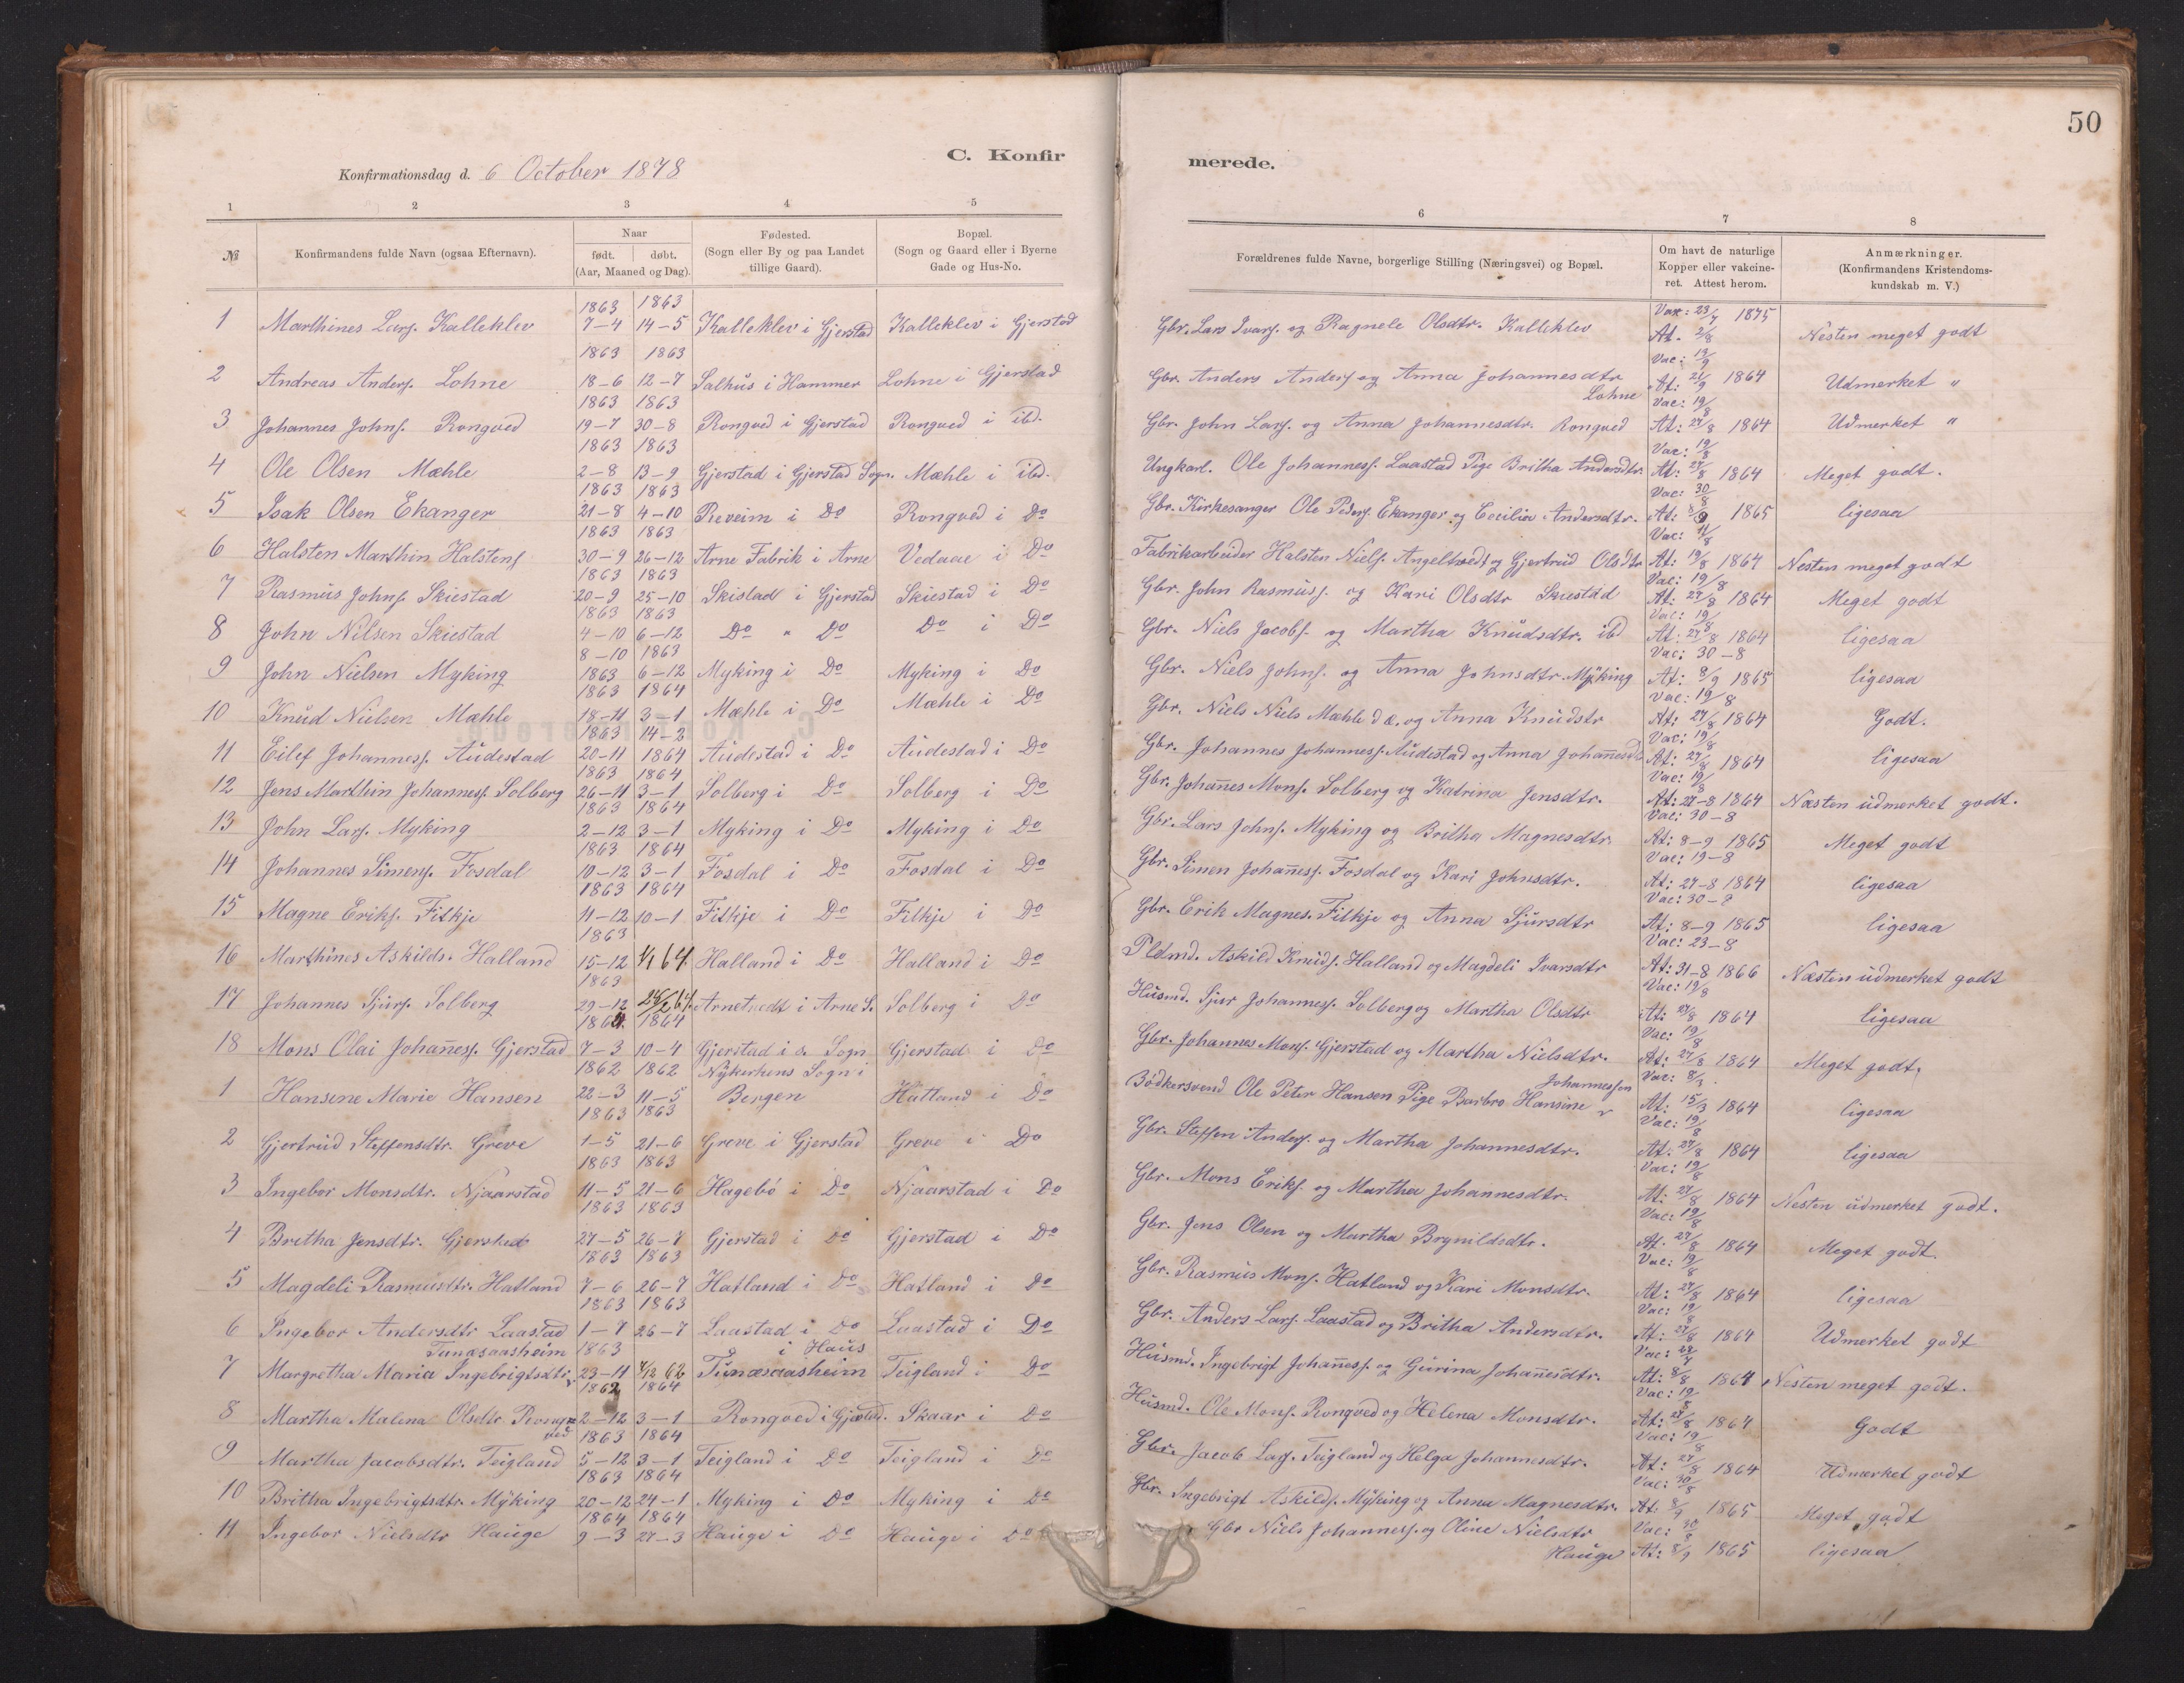 50
C. Konfir
merede.
Konfirmationsdag d. 6 October 1878
1 2 3 4 5
6 7 8
№ Konfirmandens fulde Navn (ogsaa Efternavn). Naar født. døbt. (Aar, Maaned og Dag). Fødested. (Sogn eller By og paa Landet tillige Gaard). Bopæl. (Sogn og Gaard eller i Byerne Gade og Hus-No.
Forældrenes fulde Navne, borgerlige Stilling (Næringsvei) og Bopæl. Om havt de naturlige Kopper eller vakcineret. Attest herom. Anmærkninger. (Konfirmandens Kristendomskundskab m. V.)
1863 1863 Vac: 23/7 1875
1 Marthines Lars. Kalleklev 7-4 14-5 Kalleklev i Gjerstad Kalleklev i Gjerstad Gbr. Lars Ivars. og Ragnele Olsdtr. Kalleklev At. 2/8 Nesten meget godt
1863 1863 Vac: 19/9
2 Andreas Anders. Lohne 18-6 12-7 Salhus i Hammer Lohne i Gjerstad Gbr. Anders Anders. og Anna Johannesdtr Lohne At: 21/9 1864 Udmerket "
1863 1863 Vac: 19/8
3 Johannes Johns. Rongved 19-7 30-8 Rongved i Gjerstad Rongved i ibd. Gbr. John Lars. og Anna Johannesdtr. Rongved At: 27/8 1864 Udmerket "
1863 1863 Vac: 19/8
4 Ole Olsen Mæhle 2-8 13-9 Gjerstad i Gjerstad Sogn. Mæhle i ibd. Ungkarl. Ole Johanness. Laastad Pige Britha Andersdtr. At: 27/8 1864 Meget godt.
1863 1863 Vac: 30/8
5 Isak Olsen Ekanger 21-8 4-10 Reveim i Do Rongved i Do Gbr. Kirkesanger Ole Peders. Ekanger og Cecilia Andersdtr. At: 8/9 1865 ligesaa
1863 1863 Vac: /8
6 Halsten Marthin Halstens. 30-9 26-12 Arne Fabrik i Arne Vedaae i Do Fabrikarbeider Halsten Niels. Angeltvedt og Gjertrud Olsdtr At: 19/8 1864 Nesten meget godt
1863 1863 Vac: 19/8
7 Rasmus Johns. Skiestad 20-9 25-10 Skistad i Gjerstad Skiestad i Do Gbr. John Rasmuss. og Kari Olsdtr Skiestad At: 27/8 1864 Meget godt
1863 1863 Vac: 19/8
8 John Nilsen Skiestad 4-10 6-12 Do " Do Do i Do Gbr. Niels Jacobs. og Martha Knudsdtr. ibd At: 27/8 1864 ligesaa
8-10 1863 Vac: 30-8
9 John Nielsen Myking 1863 6-12 Myking i Do Myking i Do Gbr. Niels Johns. og Anna Johnsdtr. Myking At: 8/9 1865 ligesaa
1863 1864 Vac: 19/8
10 Knud Nielsen Mæhle 18-11 3-1 Mæhle i Do Mæhle i Do Gbr. Niels Niels Mæhle d.æ. og Anna Knudstr At: 27/8 1864 Godt.
1863 14-2 Vac: 19/8
11 Eilef Johanness. Audestad 20-11 1864 Audestad i Do Audestad i Do Gbr. Johannes Johanness. Audestad og Anna Johanesd At: 27/8 1864 ligesaa
1863 1864 Vac: 19/8
12 Jens Marthin Johanness. Solberg 26-11 3-1 Solberg i Do Solberg i Do Gbr. Johanes Mons. Solberg og Katrina Jensdtr. At: 27-8 1864 Næsten udmerket godt.
1863 1864 Vac: 30-8
13 John Lars. Myking 2-12 3-1 Myking i Do Myking i Do Gbr. Lars Johns. Myking og Britha Magnesdtr. At: 8-9 1865 Meget godt
1863 1864 Vac: 19-8
14 Johannes Simens. Fosdal 10-12 3-1 Fosdal i Do Fosdal i Do Gbr. Simen Johaness. Fosdal og Kari Johnsdtr. At: 27-8 1864 ligesaa
1863 1864 Vac: 30-8
15 Magne Eriks. Fitkje 11-12 10-1 Fitkje i Do Fitkje i Do Gbr. Erik Magnes. Fitkje og Anna Sjursdtr At: 8-9 1865 ligesaa
1863 Vac: 23-8
16 Marthines Askilds. Halland 15-12 1/1 64. Halland i Do Halland i Do Pldmd. Askild Knuds. Halland og Magdeli Ivarsdtr At: 31-8 1866 Næsten udmerket godt
1863 Vac: 19/8
17 Johannes Sjurs. Solberg 29-12 28/2 64. Arnetvedt i Arne S. Solberg i Do Husmd. Sjur Johanness. Solberg og Martha Olsdtr At: 27/8 1864 ligesaa
1864. 1864 Vac: 19/8
18 Mons Olai Johaness. Gjerstad 7-3 10-4 Gjerstad i s. Sogn Gjerstad i Do Gbr. Johannes Mons. Gjerstad og Martha Nielsdtr. At: 27/8 1864 Meget godt.
1862 1862 Nykerkens Sogn i Vac: 8/3
1 Hansene Marie Hansen 22-3 11-5 Bergen Hatland i Do Bødkersvend Ole Peter Hansen Pige Barbro Hansine Johannessen At: 15/3 1864 ligesaa
1863 1863 Vac: 19/8
2 Gjertrud Steffensdtr. Greve 1-5 21-6 Greve i Gjerstad Greve i Do Gbr. Steffen Anders. og Martha Johannesdtr. At: 27/8 1864 ligesaa
1863 1863 Vac: 19/8
3 Ingebor Monsdtr. Njaarstad 11-5 21-6 Hagebö i Do Njaarstad i Do Gbr. Mons Eriks. og Martha Johannesdtr. At: 27/8 1864 Nesten udmerket godt.
1863 1863 Vac: 19/8
4 Bretha Jensdtr. Gjerstad 27-5 26-7 Gjerstad i Do Gjerstad i Do Gbr. Jens Olsen og Martha Brynildsdtr. At: 27/8 1864 Meget godt.
1863 1863 Vac: 19/8
5 Magdeli Rasmusdtr. Hatland 7-6 26-7 Hatland i Do Hatland i Do Gbr. Rasmus Mons. Hatland og Kari Monsdtr. At: 27/8 1864 ligesaa
1863 1863 Vac: 19/8
6 Ingebor Andersdtr Laastad 1-7 26-7 Laastad i Do Laastad i Do Gbr. Anders Lars. Laastad og Britha Andersdtr. At: 27/8 1864 Udmerket godt
Tunæsaasheim 1863 i Haus Vac: 28/7
7 Margretha Maria Ingebrigtsdtr. 23-11 7/12 62 Tunæsaasheim Teigland i Do Husmd. Ingebrigt Johaness. og Gurina Johanesdtr. At: 8/8 1864 Nesten meget godt.
1862 1864 Vac: 19/8
8 Martha Malena Olsdtr. Rongved 2-12 3-1 Rongved i Gjerstd. Skaar i Do Husmd. Ole Mons. Rongved og Helena Monsdtr. At: 27/8 1864 Godt
1863 1864 Vac: 19/8
9 Martha Jacobsdtr. Teigland 5-12 3-1 Teigland i Do Teigland i Do Gbr. Jacob Lars. Teigland og Helga Johannesdtr. At: 27/8 1864 Udmerket godt
1863 1864 Vac: 30/8
10 Britha Ingebrigtsdtr. Myking 20-12 24-1 Myking i Do Myking i Do Gbr. Ingebrigt Askilds. Myking og Anna Magnesdtr. At: 8/9 1865 Meget godt
1864 1864 Vac: 30/8
11 Ingebor Nielsdtr Hauge 9-3 27-3 Hauge i Do Hauge i Do Gbr Niels Johanness. og Oline Nielsdtr Hauge At: 8/9 1865 ligesaa